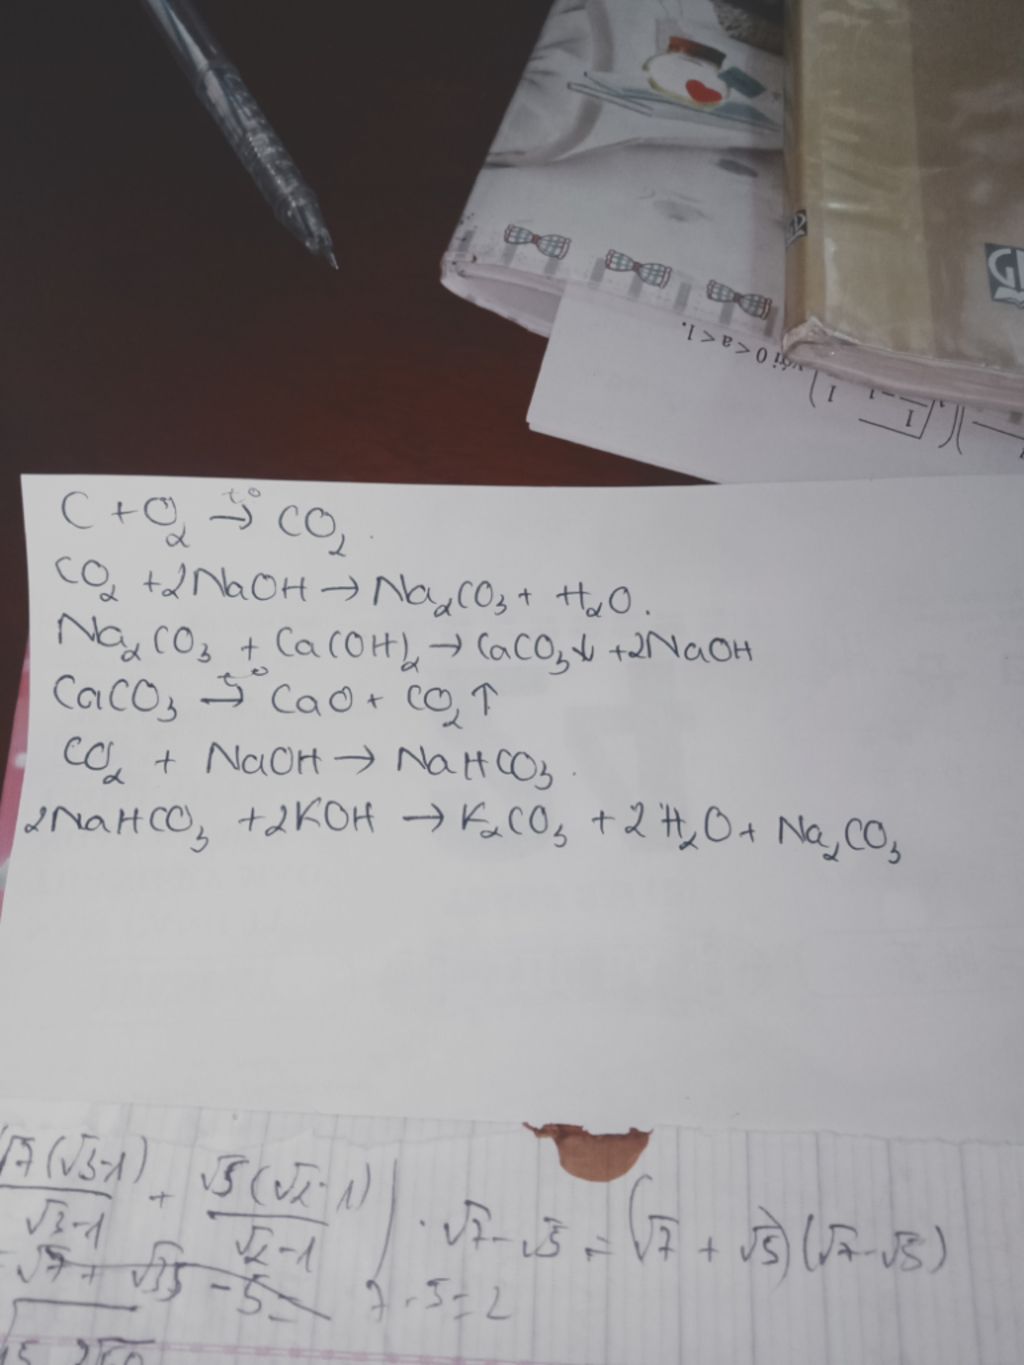 với 0 < a < 1.
C + O₂ →t° CO₂.
CO₂ + 2NaOH → Na₂CO₃ + H₂O.
Na₂CO₃ + Ca(OH)₂ → CaCO₃↓ + 2NaOH
CaCO₃ →t° CaO + CO₂↑
CO₂ + NaOH → NaHCO₃.
2NaHCO₃ + 2KOH → K₂CO₃ + 2H₂O + Na₂CO₃
√7(√3-1)/(√3-1) + √5(√2-1)/(√2-1)) . √7-√5 = (√7 + √5)(√7-√5)
7-5=2